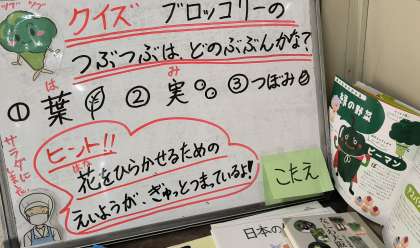 クイズ ブロッコリーの
つぶつぶは、どのぶぶんかな?
は み
①葉 ②実 ③つぼみ
ヒント!!
はな
花をひらかせるための
えいようが、ぎゅっとつまっているよ!
サラダに
こたえ
緑の野菜
ピーマン
日本の